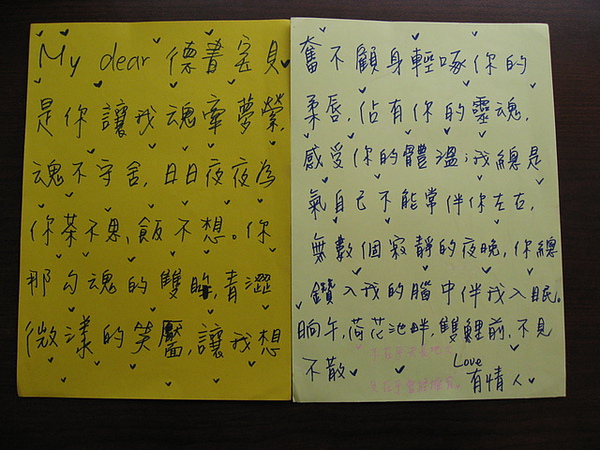 My dear 德菁宝貝
是你讓我魂牽夢縈,
魂不守舍,日日夜夜為
你茶不思、飯不想。你
那勾魂的雙眸,青澀
微漾的笑靨,讓我想
奮不顧身輕啄你的
柔唇,佔有你的靈魂,
感受你的體溫;我總是
氣自己不能常伴你左右,
無數個寂靜的夜晚,你總
鑽入我的腦中伴我入眠。
晌午,荷花池畔,雙鯉前,不見
不散
Love
有情人